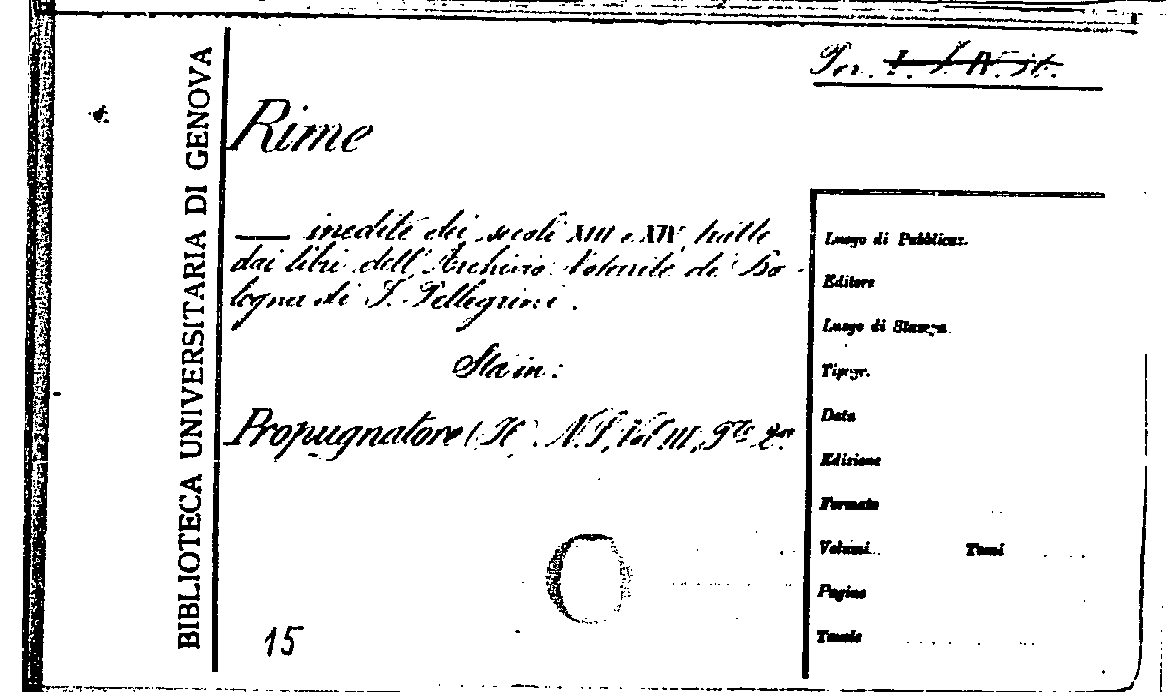 BIBLIOTECA UNIVERSITARIA DI GENOVA
Per.
Rime
— inedite dei secoli XIII e XIV, tratte
dai libri dell'Archivio Notarile di Bo-
logna di F. Pellegrini.
Sta in:
Propugnatore (Il). N.S, Vol III, Pte 2a.
15
Luogo di Pubblicaz.
Editore
Luogo di Stampa
Tipogr.
Data
Edizione
Formato
Volumi Tomi
Pagine
Tavole